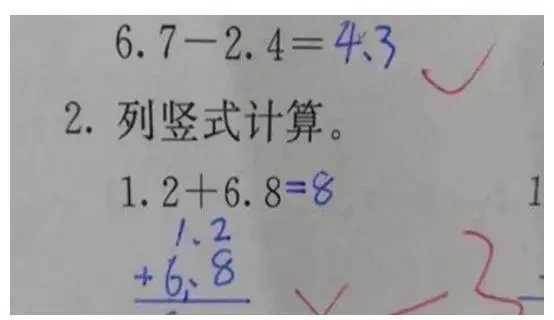 6.7－2.4＝4.3
2. 列竖式计算。
1.2＋6.8=8
1.2
+6.8